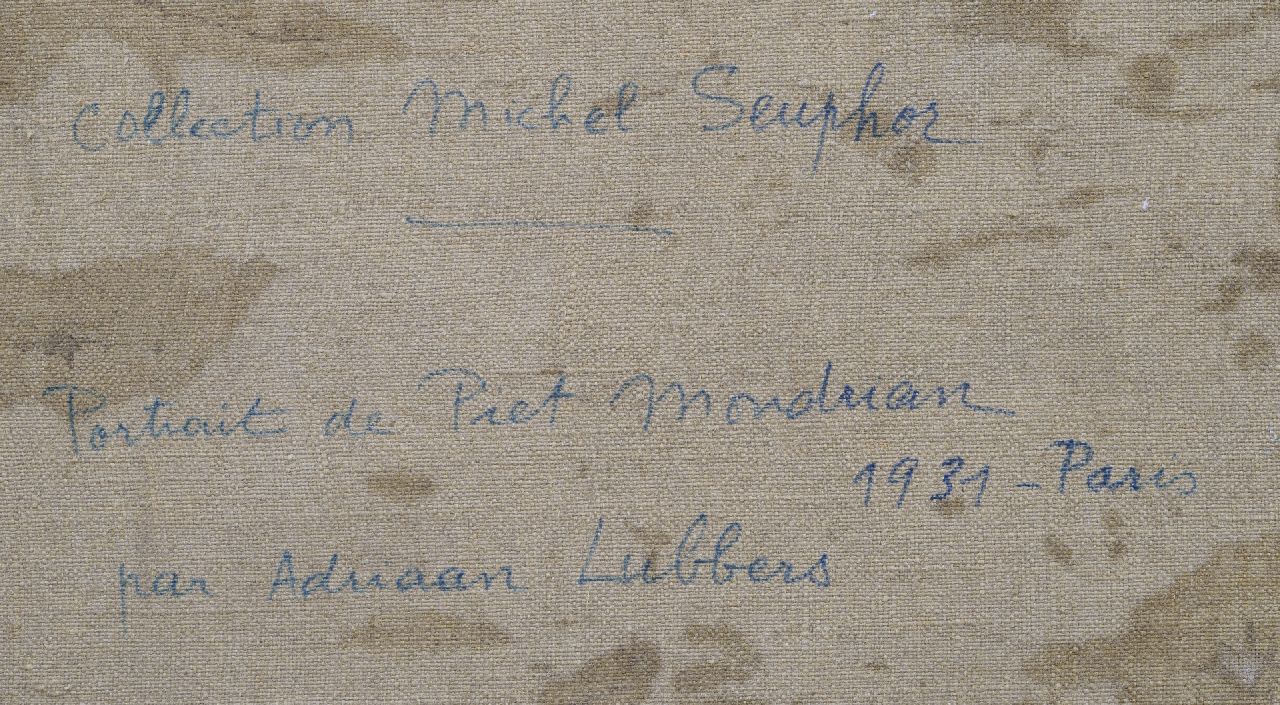 Collection Michel Seuphor
Portrait de Piet Mondrian
1931 - Paris
par Adriaan Lubbers